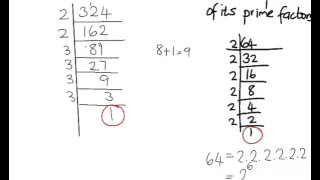 2 324
2 162
3 81
3 27
3 9
3 3
1
8+1=9
of its prime factors
2 64
2 32
2 16
2 8
2 4
2 2
1
64 = 2.2.2.2.2.2
= 2⁶